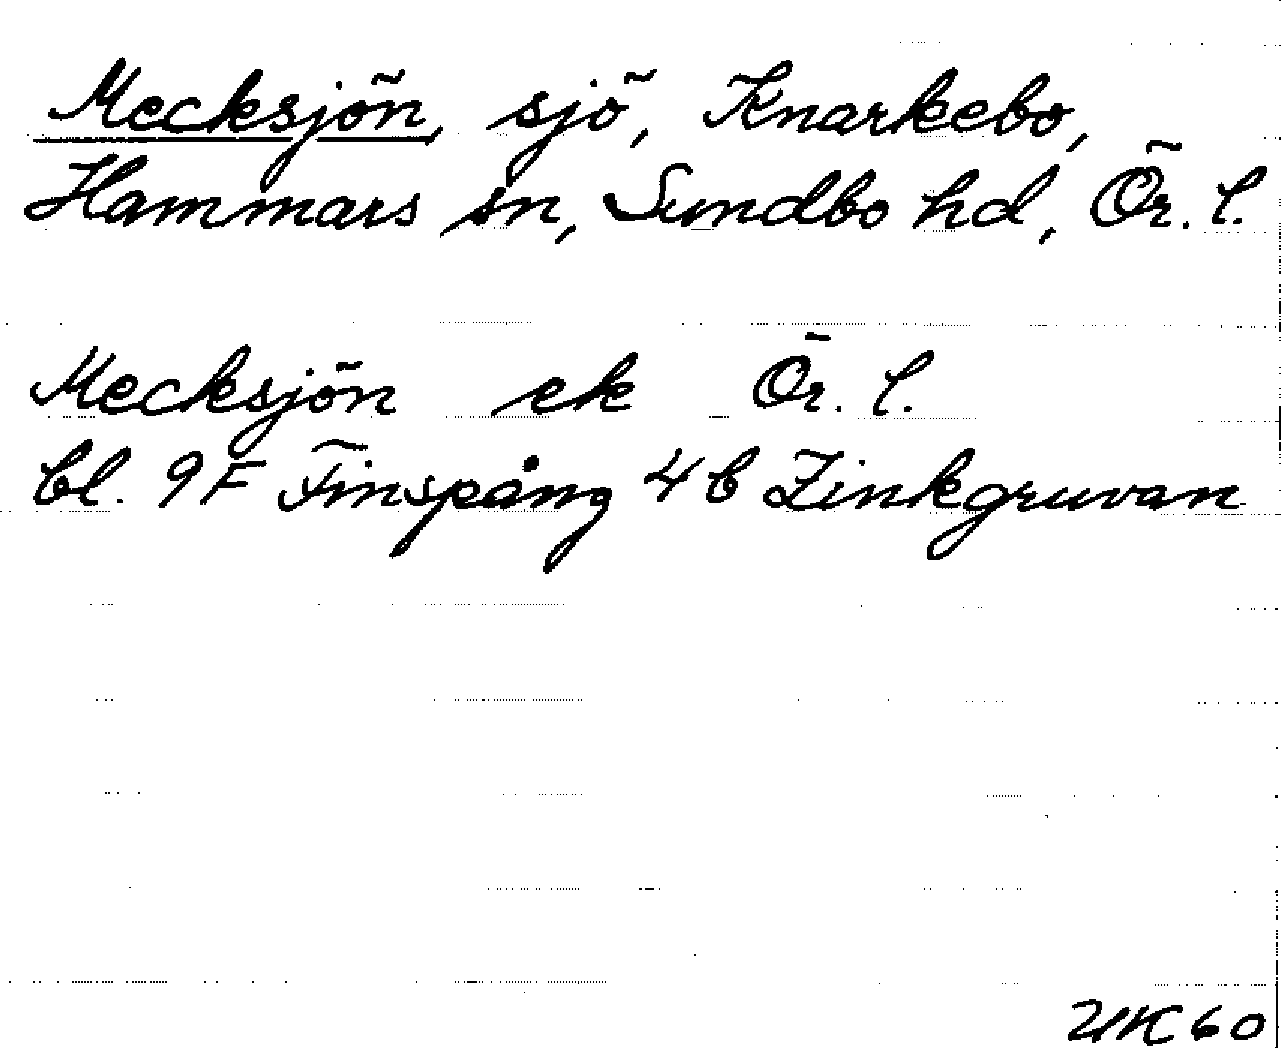 Mecksjön, sjö, Knarkebo,
Hammars sn, Sundbo hd, Ör. l.
Mecksjön ek Ör. l.
bl. 9F Finspång 4b Zinkgruvan